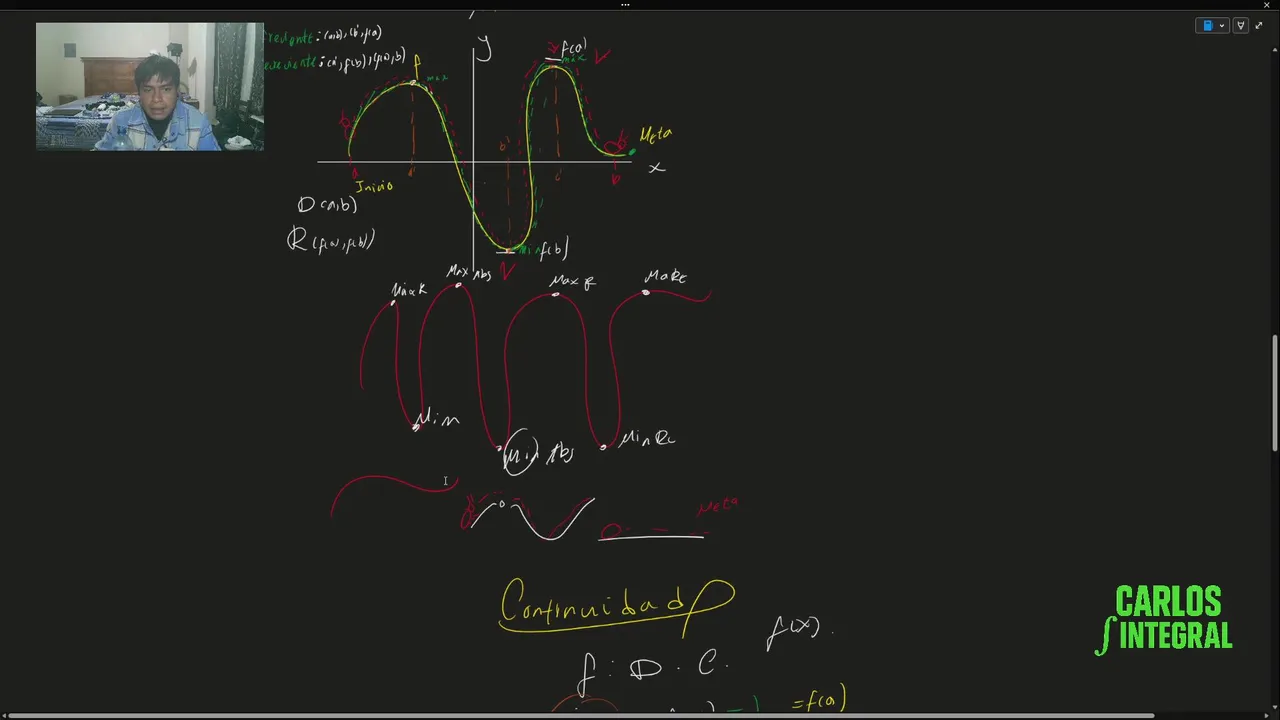 y
f(a)
máx
f
max
b'
c'
Meta
x
a
b
Inicio
D (a,b)
R (f(a), f(b))
min f(b)
Max R
Max Abs
Max R
Max Re
Min
Min Abs
Min Re
Meta
Continuidad
f(x).
f : D . C.
= f(a)
CARLOS
∫ INTEGRAL